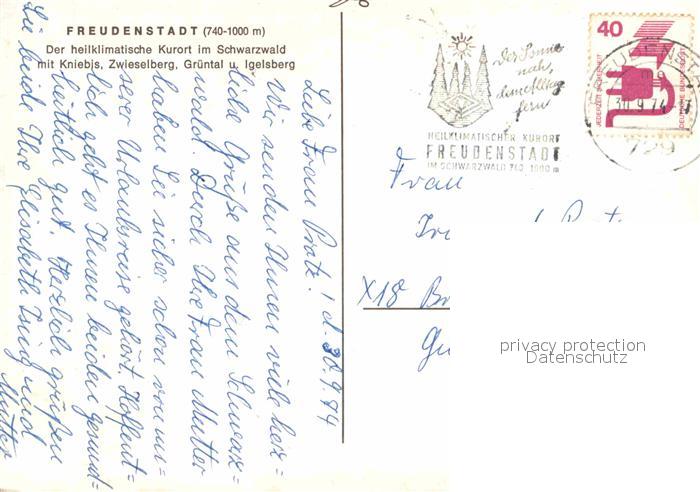 FREUDENSTADT (740-1000 m)
Der heilklimatische Kurort im Schwarzwald
mit Kniebis, Zwieselberg, Grüntal u. Igelsberg
d. 30.9.74
Liebe Frau
Wir senden Ihnen viele herz=
liche Grüße aus dem Schwarz=
wald. Durch Ihre Frau Mutter
haben Sie sicher schon von un=
serer Urlaubsreise gehört. Hoffent=
lich geht es Ihnen beiden gesund=
heitlich gut. Herzlich grüßen
Sie beide Ihre Elisabeth und
Mutter
Der Sonne
nah,
dem Alltag
fern
HEILKLIMATISCHER KURORT
FREUDENSTADT
IM SCHWARZWALD 740-1000 m
40
JEDERZEIT SICHERHEIT
DEUTSCHE BUNDESPOST
FREUDENSTADT
30.9.74
729
Frau
X18 Br
privacy protection
Datenschutz